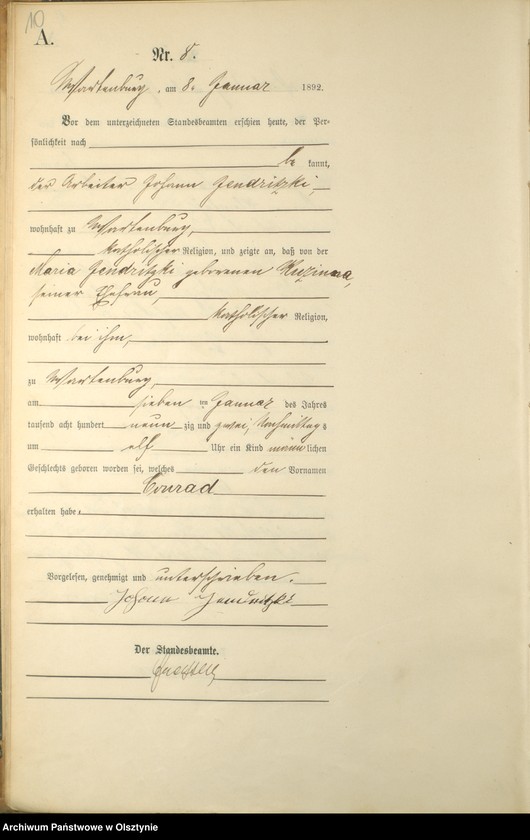 10
A.
Nr. 8.
Wartenburg, am 8. Januar 1892.
Vor dem unterzeichneten Standesbeamten erschien heute, der Per-
sönlichkeit nach
be kannt,
der Arbeiter Johann Jendritzki,
wohnhaft zu Wartenburg,
katholischer Religion, und zeigte an, daß von der
Maria Jendritzki geborenen
seiner Ehefrau,
katholischer Religion,
wohnhaft bei ihm,
zu Wartenburg,
am sieben ten Januar des Jahres
tausend acht hundert neun zig und zwei, Nachmittag s
um elf Uhr ein Kind männ lichen
Geschlechts geboren worden sei, welches den Vornamen
Conrad
erhalten habe.
Vorgelesen, genehmigt und unterschrieben.
Johann Jendritzki
Der Standesbeamte.
Archiwum Państwowe w Olsztynie